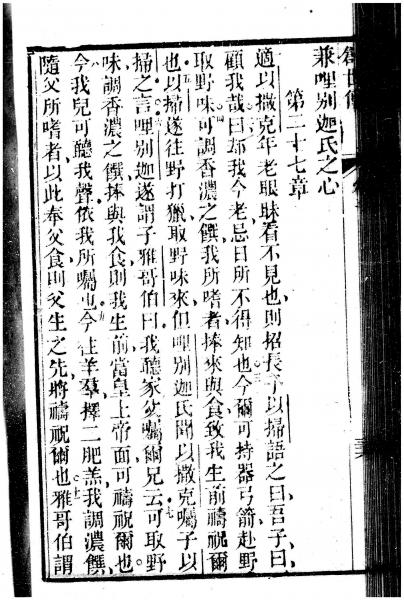 創世傳
兼哩別迦氏之心
第二十七章
適以撒克年老眼昧看不見也則招長子以掃語之曰吾子曰
顧我哉曰却我今老忌日所不得知也今爾可持器弓箭赴野
取野味可調香濃之饌我所嗜者捧來與食致我生前禱祝爾
也以掃遂往野打獵取野味來但哩別迦氏聞以撒克囑子以
掃之言哩別迦遂謂子雅哥伯曰我聽家父囑爾兄云可取野
味調香濃之饌捧與我食則我生前當皇上帝面可禱祝爾也
今我兒可聽我聲依我所囑也今往羊羣擇二肥羔我調濃饌
隨父所嗜者以此奉父食則父生之先將禱祝爾也雅哥伯謂